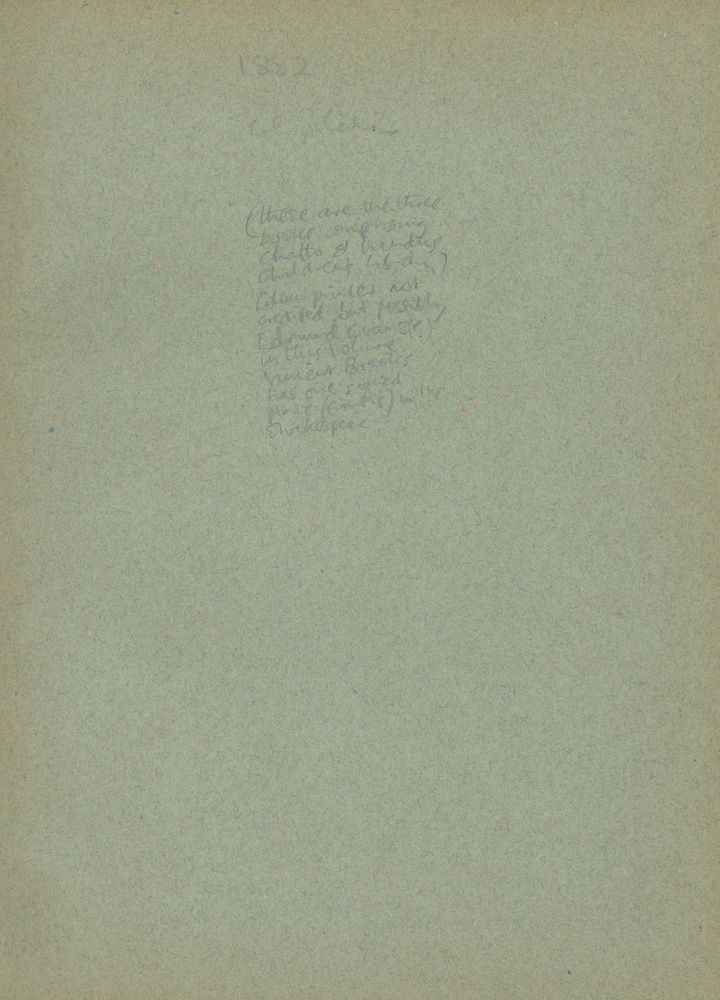 1882
(these are the three
books comprising
Chatto & Windus
children's library)
Colour printer not
credited but possibly
Edmund Evans
in this volume
Vincent Brooks
has one signed
plate in the
Shakespeare